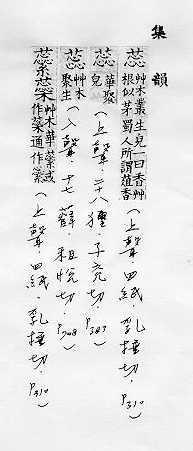 集韻
蕊 艸木叢生皃一曰香艸根似茅蜀人所謂葅香 (上聲·四紙·乳捶切·P310)
蕊 華聚皃 (上聲·二十八獮·子兗切·P383)
蕊 艸木聚生 (入聲·十七薛·租悅切·P708)
蕊 艸木華蘂或作蘂通作 (上聲·四紙·乳捶切·P310)